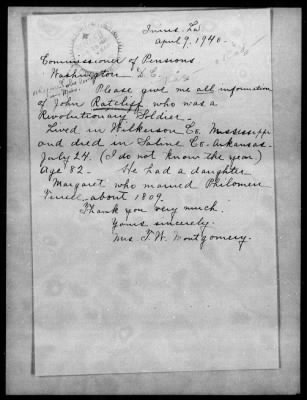 Innis, La
April 9, 1940.
Commissioner of Pensions
Washington D.C.
Please give me all information
of John Ratcliff who was a
Revolutionary Soldier.
Lived in Wilkerson Co. Mississippi
and died in Saline Co. Arkansas.
July 24. (I do not know the year)
Age 82. He had a daughter
Margaret who married Philomen
Terrell, about 1809.
Thank you very much.
Yours sincerely,
Mrs. T. W. Montgomery.